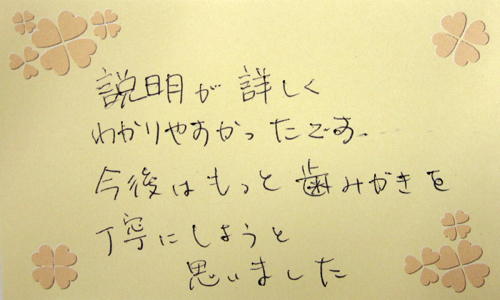 説明が詳しく
わかりやすかったです。
今後はもっと歯みがきを
丁寧にしようと
思いました